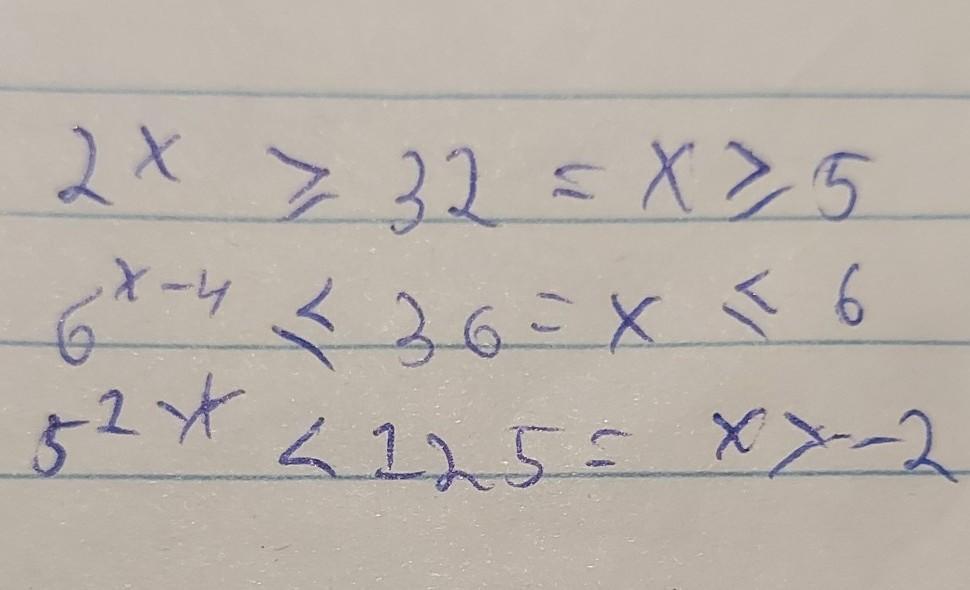 2^x ≥ 32 = x ≥ 5
6^{x-4} ≤ 36 = x ≤ 6
5^{2-x} < 125 = x > -2